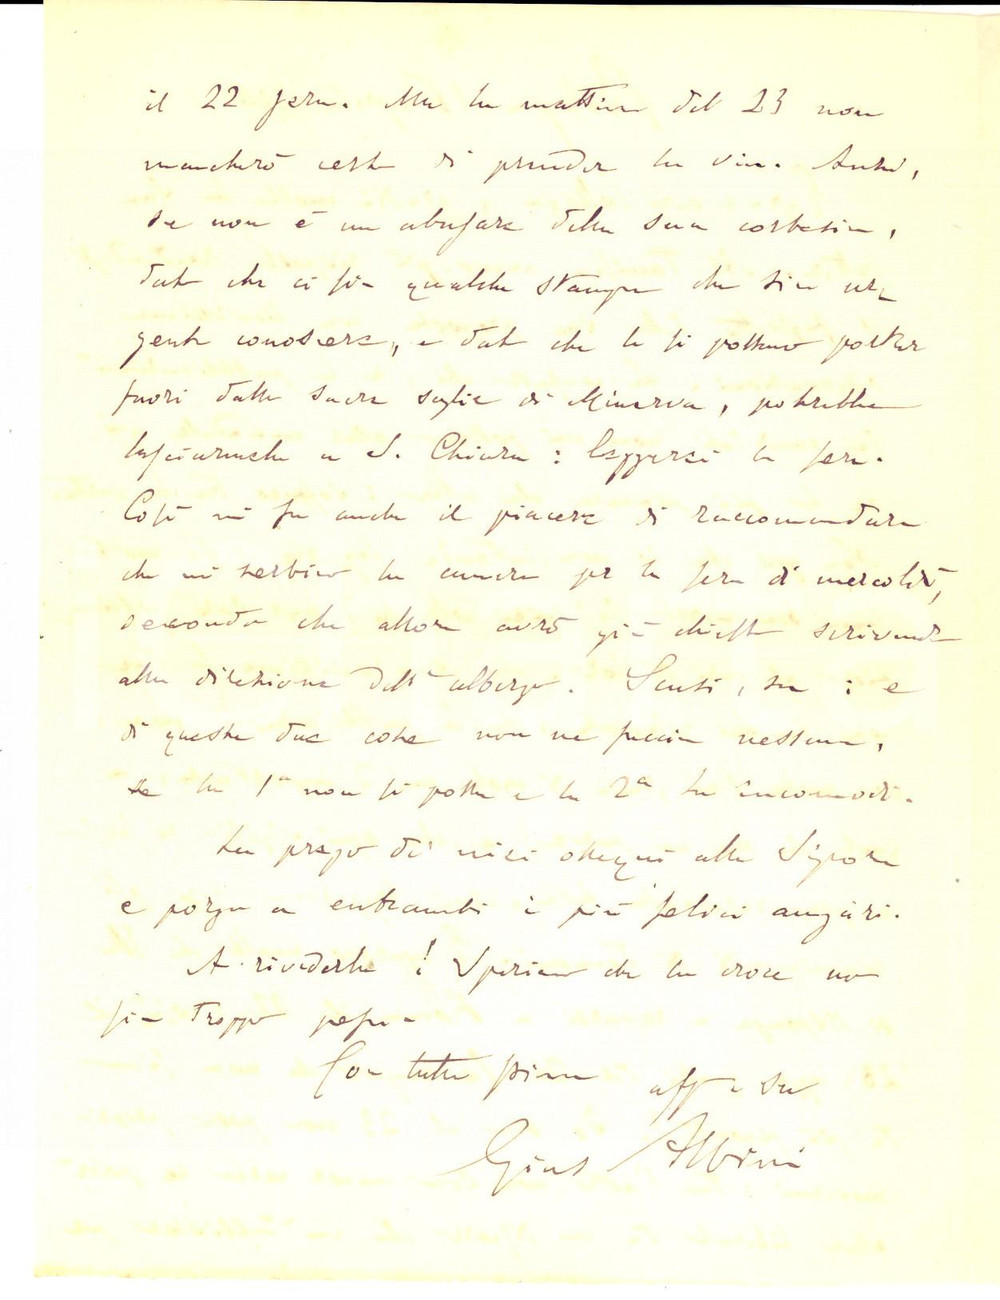 il 22 sera. Ma la mattina del 23 non
mancherò certo di prender la via. Anzi,
se non è un abusare della sua cortesia,
dato che ci sia qualche stampa che sia ur-
gente conoscere, e dato che le si possano portar
fuori dalle sacre soglie di Minerva, potrebbe
lasciarmela a S. Chiara: leggerei la sera.
Così mi fa anche il piacere di raccomandare
che mi serbino la camera per la sera di mercoledì,
secondo che allora avrò già chiesto scrivendo
alla direzione dell'albergo. Scusi, sa: e
di queste due cose non ne faccia nessuna,
se la 1ª non si possa e la 2ª La incomodi.
La prego de' miei ossequi alla Signora
e porgo a entrambi i più felici auguri.
A rivederla! Speriamo che la croce non
sia troppo pesa.
Con tutta stima aff. suo
Gius Albini